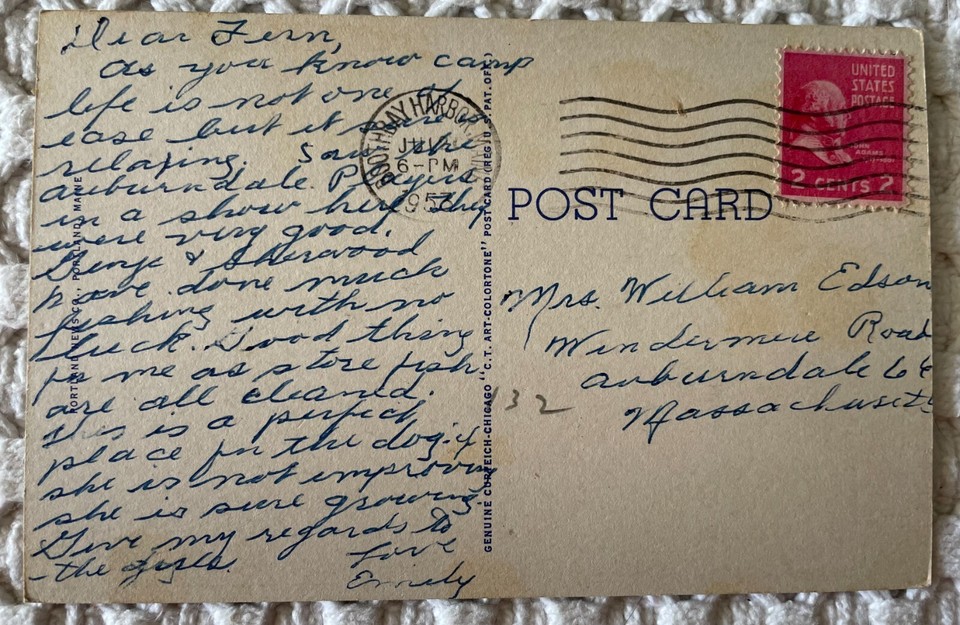 Dear Fern,
As you know camp
life is not one of
ease but it is
relaxing. Saw the
Auburndale Players
in a show here they
were very good.
& Sherwood
have done much
fishing with no
luck. Good thing
for me as store fish
are all cleaned.
This is a perfect
place for the dog. if
she is not improving
she is sure growing.
Give my regards to
the girls.
Love
Emily
PORTLAND NEWS CO., PORTLAND, MAINE
GENUINE CURTEICH-CHICAGO "C.T. ART-COLORTONE" POST CARD (REG. U.S. PAT. OFF.)
BOOTHBAY HARBOR
JUL
6-PM
1953
UNITED
STATES
POSTAGE
JOHN
ADAMS
2 CENTS 2
POST CARD
Mrs. William Edson
Windermere Road
Auburndale 66
Massachusetts
132